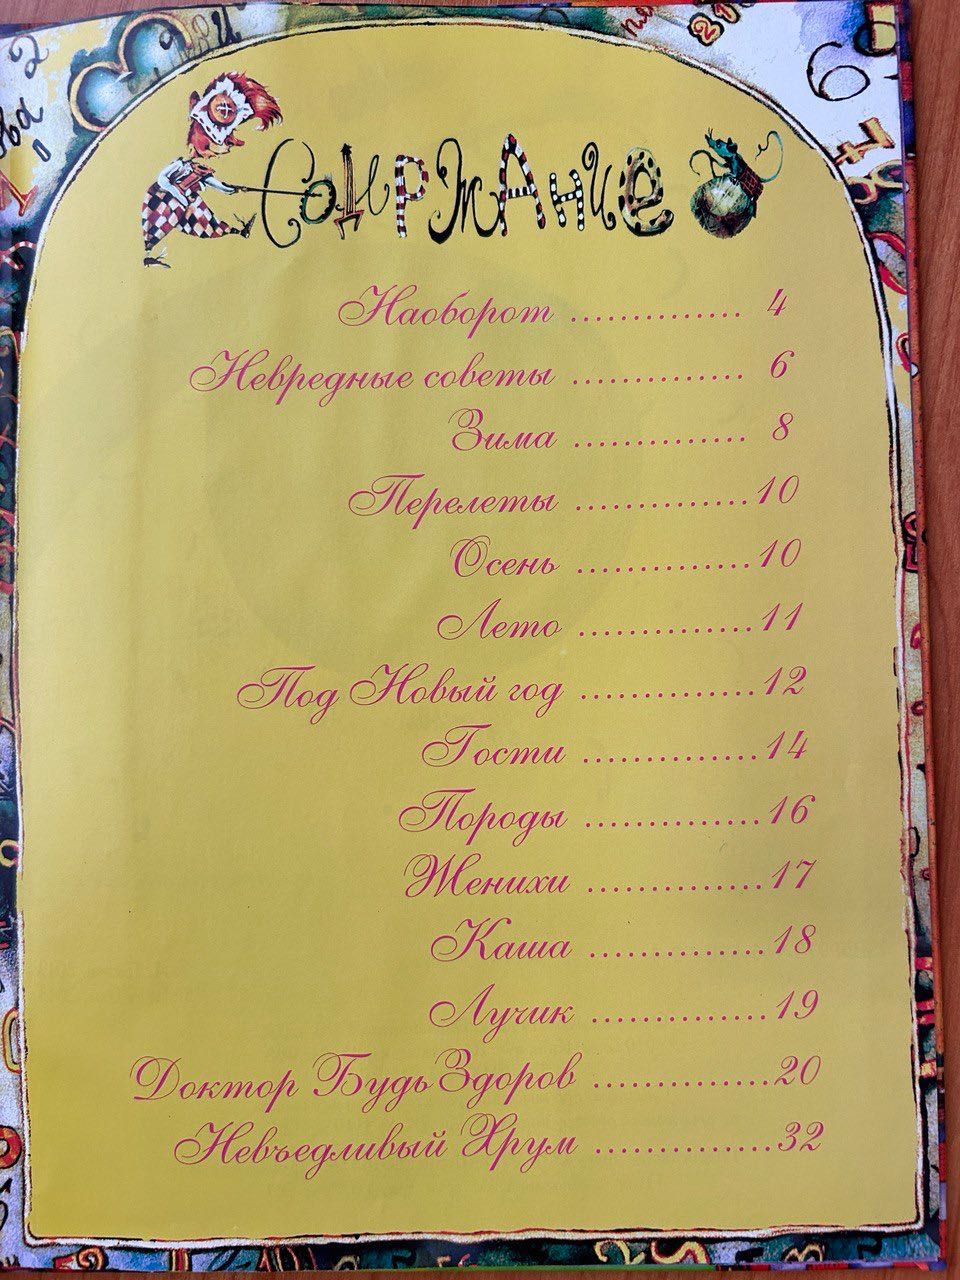 Содержание
Наоборот .............. 4
Невредные советы .............. 6
Зима .............. 8
Перелеты .............. 10
Осень .............. 10
Лето .............. 11
Под Новый год .............. 12
Гости .............. 14
Породы .............. 16
Женихи .............. 17
Каша .............. 18
Лучик .............. 19
Доктор Будь Здоров .............. 20
Невъедливый Хрум .............. 32